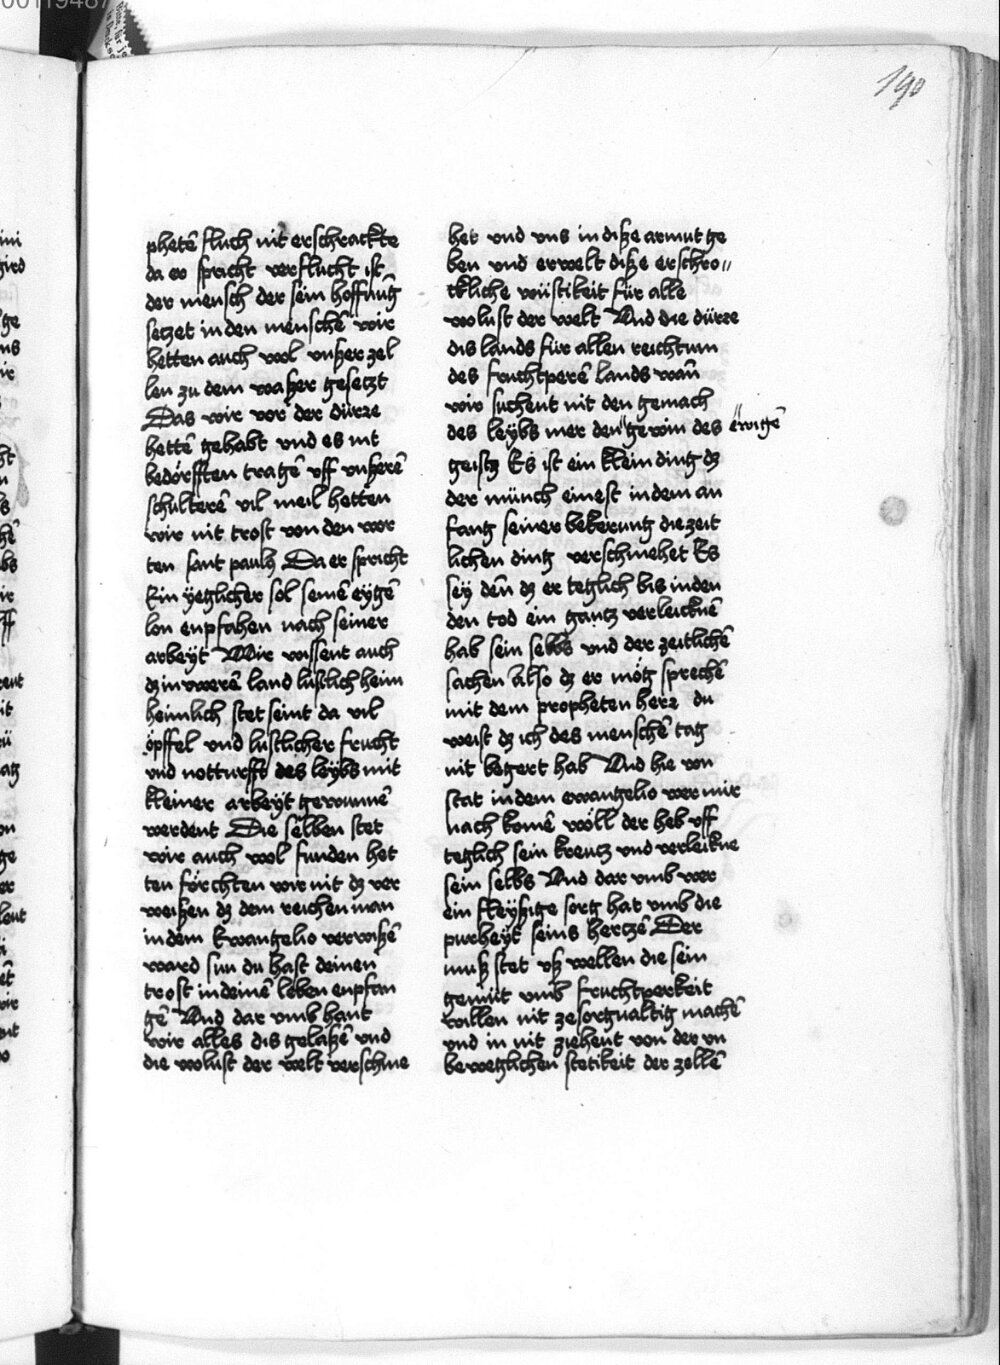 190
phetē fluch nit erschrackte
da er spricht verflucht ist
der mensch der sein hoffūg
setzet in den menschē wir
hetten auch wol vnßer zel
len zu dem waßer gesetzt
Das wir vor der dürre
hettē gehabt vnd es nit
bedörfften tragē vff vnßerē
schulterē vil meil hetten
wir nit trost von den wor
ten sant pauls Da er spricht
Ein yeglicher sol seinē eygē
lon enpfahen nach seiner
arbeyt Wir wissent auch
dz in vwerē land lustlich heim
heimlich stet seint da vil
öpffel vnd lustlicher frucht
vnd notturfft des leybs mit
kleiner arbeyt gewunnē
werdent Die selben stet
wir auch wol funden het
ten förchten wir nit dz ver
weißen dz dem reichen man
in dem Ewangelio verwißē
ward sun du hast deinen
trost in deinē leben enpfan
gē Vnd dar vmb hant
wir alles dis gelaßē vnd
die wolust der welt verschme
het vnd vns in diße armut ge
ben vnd erwelt diße erschro〃
ckliche wüstikeit für alle
wolust der welt Vnd die dürre
dis lands für allen reichtum
des fruchtperē lands wan̄
wir suchent nit den gemach
des leybs mer den〃gewin des 〃ewigē
geistz Es ist ein klein ding dz
der münch einest in dem an
fang seiner bekerung die zeit
lichen ding verschmehet Es
sey den̄ dz er teglich bis in den
den tod ein gantz verleicknē
hab sein selbs vnd der zeitlichē
sachen Also dz er mög sprechē
mit dem propheten herr du
weist dz ich des menschē tag
nit begert hab Vnd hie von
stat in dem ewangelio wer mir
nach komē wöll der heb vff
teglich sein kreutz vnd verleikne
sein selbs Vnd dar vmb wer
ein fleyßige sorg hat vmb die
purheyt seins hertzē Der
muß stet vß wellen die sein
gemüt vmb fruchtperkeit
wollen nit ze sorgualtig machē
vnd in nit ziehent von der vn
beweglichen stetikeit der zellē